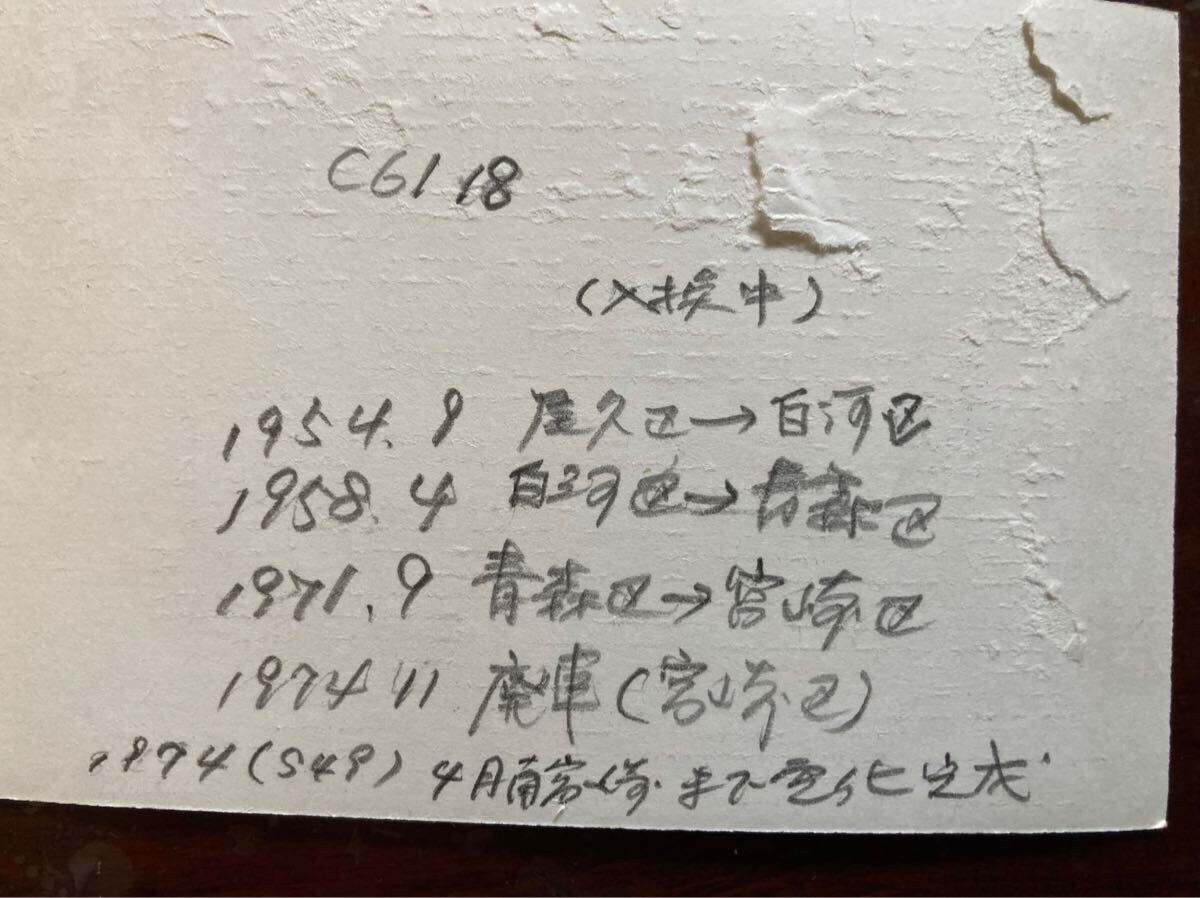 C61 18
(入換中)
1954.9 尾久区→白河区
1958.4 白河区→青森区
1971.9 青森区→宮崎区
1974 11 廃車(宮崎区)
1974(S49) 4月南宮崎まで電化完成